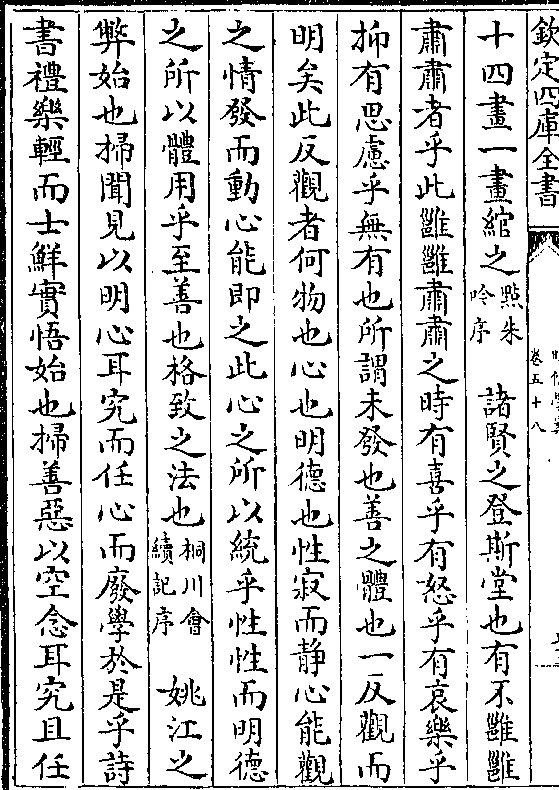 欽定四庫全書
卷五十八
十四畫一畫綰之點朱吟序　諸賢之登斯堂也有不雝雝
肅肅者乎此雝雝肅肅之時有喜乎有怒乎有哀樂乎
抑有思慮乎無有也所謂未發也善之體也一反觀而
明矣此反觀者何物也心也明德也性寂而静心能觀
之情發而動心能即之此心之所以統乎性性而明德
之所以體用乎至善也格致之法也桐川會續記序　姚江之
弊始也掃聞見以明心耳究而任心而廢學於是乎詩
書禮樂輕而士鮮實悟始也掃善惡以空念耳究且任